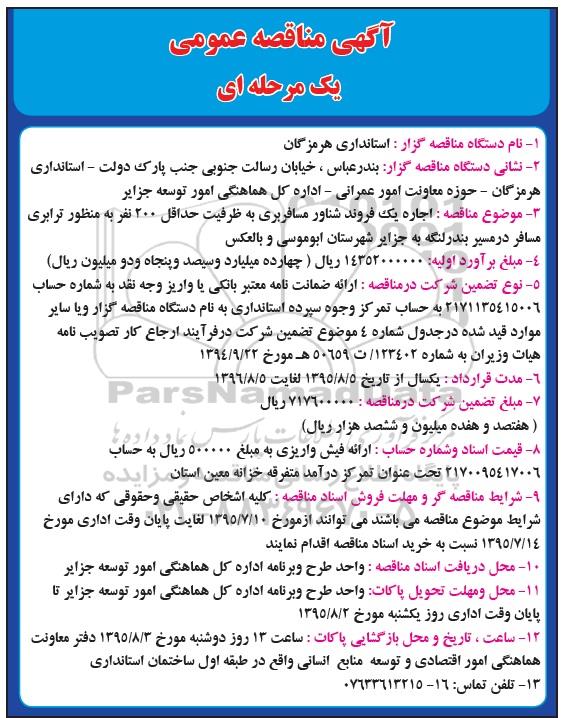 آگهی مناقصه عمومی
یک مرحله ای
۱- نام دستگاه مناقصه گزار : استانداری هرمزگان
۲- نشانی دستگاه مناقصه گزار: بندرعباس ، خیابان رسالت جنوبی جنب پارک دولت - استانداری
هرمزگان - حوزه معاونت امور عمرانی - اداره کل هماهنگی امور توسعه جزایر
۳- موضوع مناقصه : اجاره یک فروند شناور مسافربری به ظرفیت حداقل ۲۰۰ نفر به منظور ترابری
مسافر درمسیر بندرلنگه به جزایر شهرستان ابوموسی و بالعکس
۴- مبلغ برآورد اولیه: ۱۴۳۵۲۰۰۰۰۰۰ ریال ( چهارده میلیارد وسیصد وپنجاه ودو میلیون ریال)
۵- نوع تضمین شرکت درمناقصه : ارائه ضمانت نامه معتبر بانکی یا واریز وجه نقد به شماره حساب
۲۱۷۱۱۳۵۴۱۵۰۰۶ به حساب تمرکز وجوه سپرده استانداری به نام دستگاه مناقصه گزار ویا سایر
موارد قید شده درجدول شماره ۴ موضوع تضمین شرکت درفرآیند ارجاع کار تصویب نامه
هیات وزیران به شماره ۱۲۳۴۰۲/ ت ۵۰۶۵۹ هـ مورخ ۱۳۹۴/۹/۲۲
۶- مدت قرارداد : یکسال از تاریخ ۱۳۹۵/۸/۵ لغایت ۱۳۹۶/۸/۵
۷- مبلغ تضمین شرکت درمناقصه : ۷۱۷۶۰۰۰۰۰ ریال
( هفتصد و هفده میلیون و ششصد هزار ریال)
۸- قیمت اسناد وشماره حساب : ارائه فیش واریزی به مبلغ ۵۰۰۰۰۰ ریال به حساب
۲۱۷۰۰۹۵۴۱۷۰۰۶ تحت عنوان تمرکز درآمد متفرقه خزانه معین استان
۹- شرایط مناقصه گر و مهلت فروش اسناد مناقصه : کلیه اشخاص حقیقی وحقوقی که دارای
شرایط موضوع مناقصه می باشند می توانند ازمورخ ۱۳۹۵/۷/۱۰ لغایت پایان وقت اداری مورخ
۱۳۹۵/۷/۱۴ نسبت به خرید اسناد مناقصه اقدام نمایند
۱۰- محل دریافت اسناد مناقصه : واحد طرح وبرنامه اداره کل هماهنگی امور توسعه جزایر
۱۱- محل ومهلت تحویل پاکات: واحد طرح وبرنامه اداره کل هماهنگی امور توسعه جزایر تا
پایان وقت اداری روز یکشنبه مورخ ۱۳۹۵/۸/۲
۱۲- ساعت ، تاریخ و محل بازگشایی پاکات : ساعت ۱۳ روز دوشنبه مورخ ۱۳۹۵/۸/۳ دفتر معاونت
هماهنگی امور اقتصادی و توسعه منابع انسانی واقع در طبقه اول ساختمان استانداری
۱۳- تلفن تماس: ۱۶- ۰۷۶۳۳۶۱۳۲۱۵